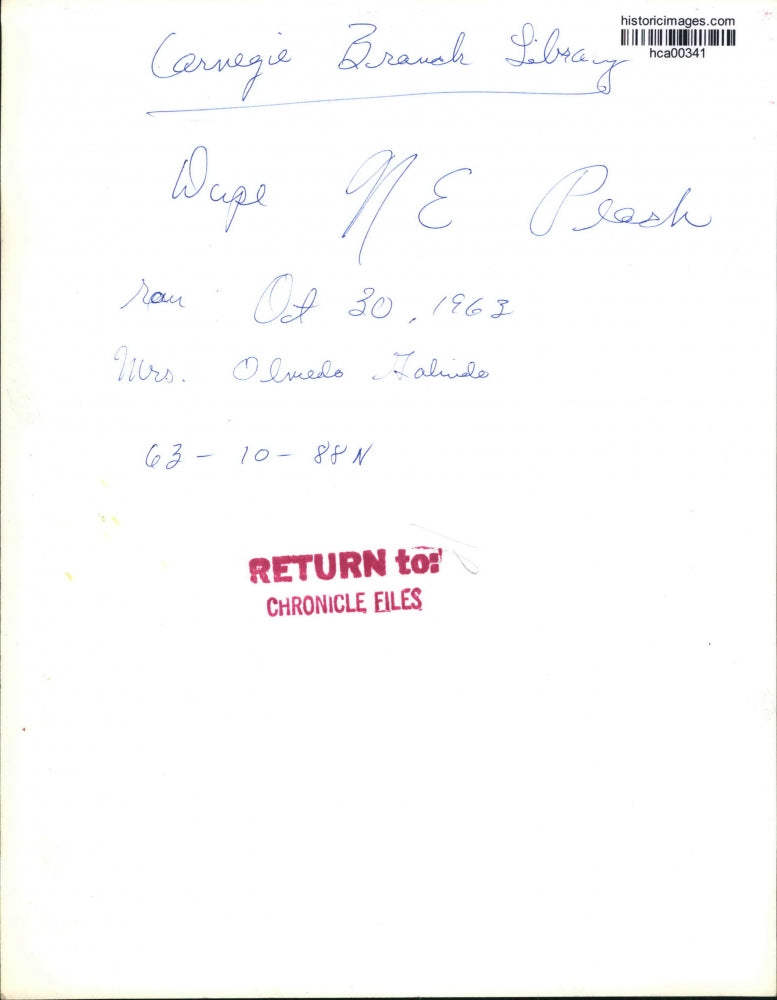 historicimages.com
hca00341
Carnegie Branch Library
N E
ran Oct 30, 1963
Mrs. Olmedo Galindo
63 - 10 - 88 N
RETURN to:
CHRONICLE FILES